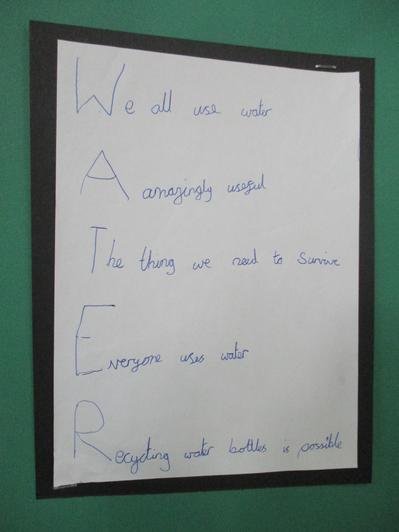 We all use water
A amazingly useful
The thing we need to survive
Everyone uses water
Recycling water bottles is possible